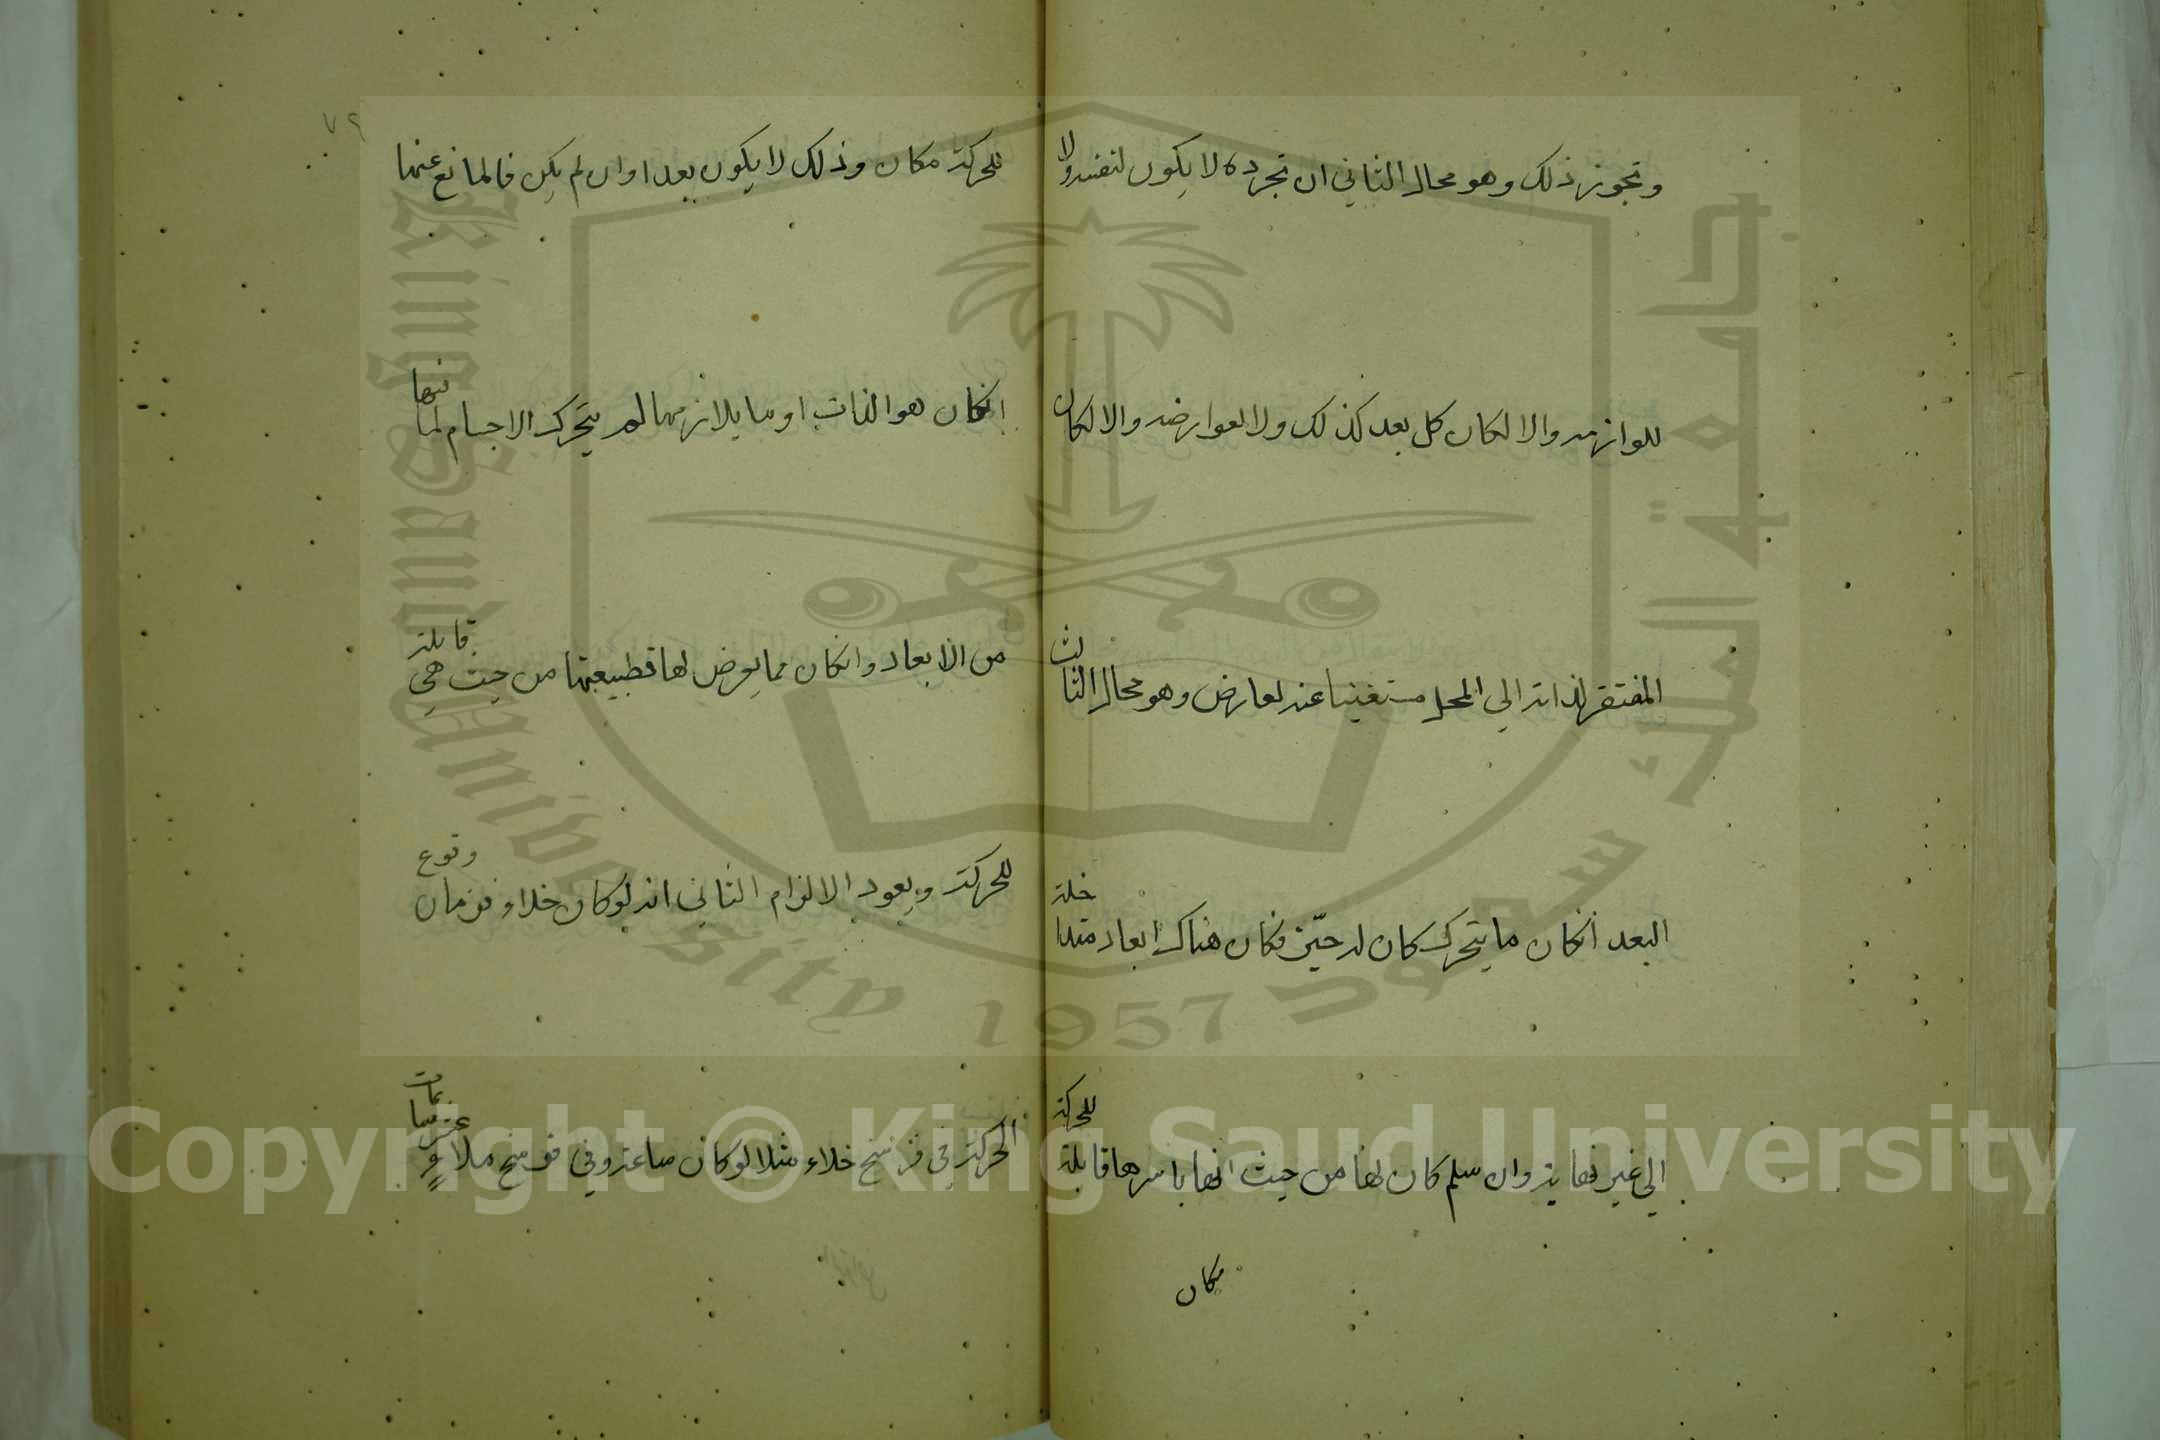 وتجويز ذلك وهو محال الثاني ان تجرده لا يكون لنفسه ولا
للوازمه والا لكان كل بعد كذلك ولا لعوارضه والا لكان
المفتقر لذاته الي المحل مستغنيا عنه لعارض وهو محال الثالث
البعد انكان مما يتحرك كان له حيّز فكان هناك ابعاد متداخلة
الي غير نهاية وان سلم كان لها من حيث انها باسرها قابلة للحركة
مكان
٧٩
للحركة مكان وذلك لا يكون بعدا وان لم يكن فالمانع عنها
انكان هو الذات او ما يلازمها لم يتحرك الاجسام لما فيها
من الابعاد وانكان مما يعرض لها فطبيعتها من حيث هي قابلة
للحركة ويعود الالزام الثاني انه لو كان خلاء فزمان وقوع
الحركة في فرسخ خلاء مثلا لو كان ساعة وفي فرسخ ملاء عشر ساعات
Copyright © King Saud University
King Saud University
جامعة الملك سعود
1957